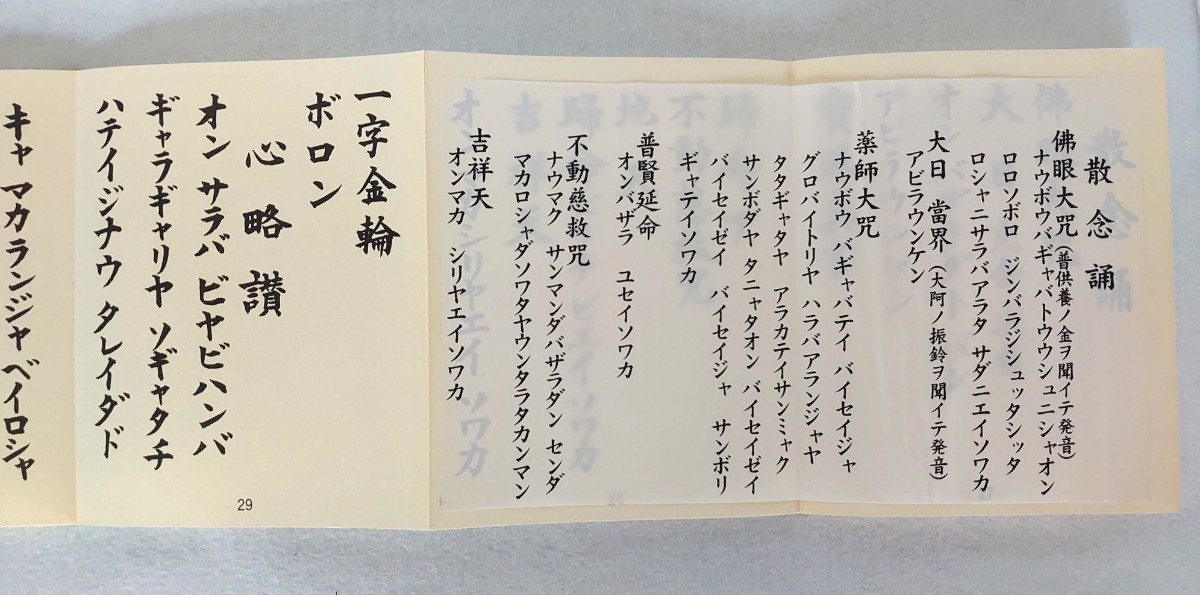 散念誦
佛眼大咒(普供養ノ金ヲ聞イテ発音)
ナウボウバギャバトウウシュニシャオン
ロロソボロ ジンバラジシュッタシッタ
ロシャニサラバアラタ サダニエイソワカ
大日 當界 (大阿ノ振鈴ヲ聞イテ発音)
アビラウンケン
薬師大咒
ナウボウ バギャバテイ バイセイジャ
グロバイトリヤ ハラバアランジャヤ
タタギャタヤ アラカテイサンミャク
サンボダヤ タニャタオン バイセイゼイ
バイセイゼイ バイセイジャ サンボリ
ギャテイソワカ
普賢延命
オンバザラ ユセイソワカ
不動慈救咒
ナウマク サンマンダバザラダン センダ
マカロシャダソワタヤウンタラタカンマン
吉祥天
オンマカ シリヤエイソワカ
一字金輪
ボロン
心略讃
オン サラバ ビヤビハンバ
ギャラギャリヤ ソギャタチ
ハテイジナウ タレイダド
29
キャ マカランジャ ベイロシャ